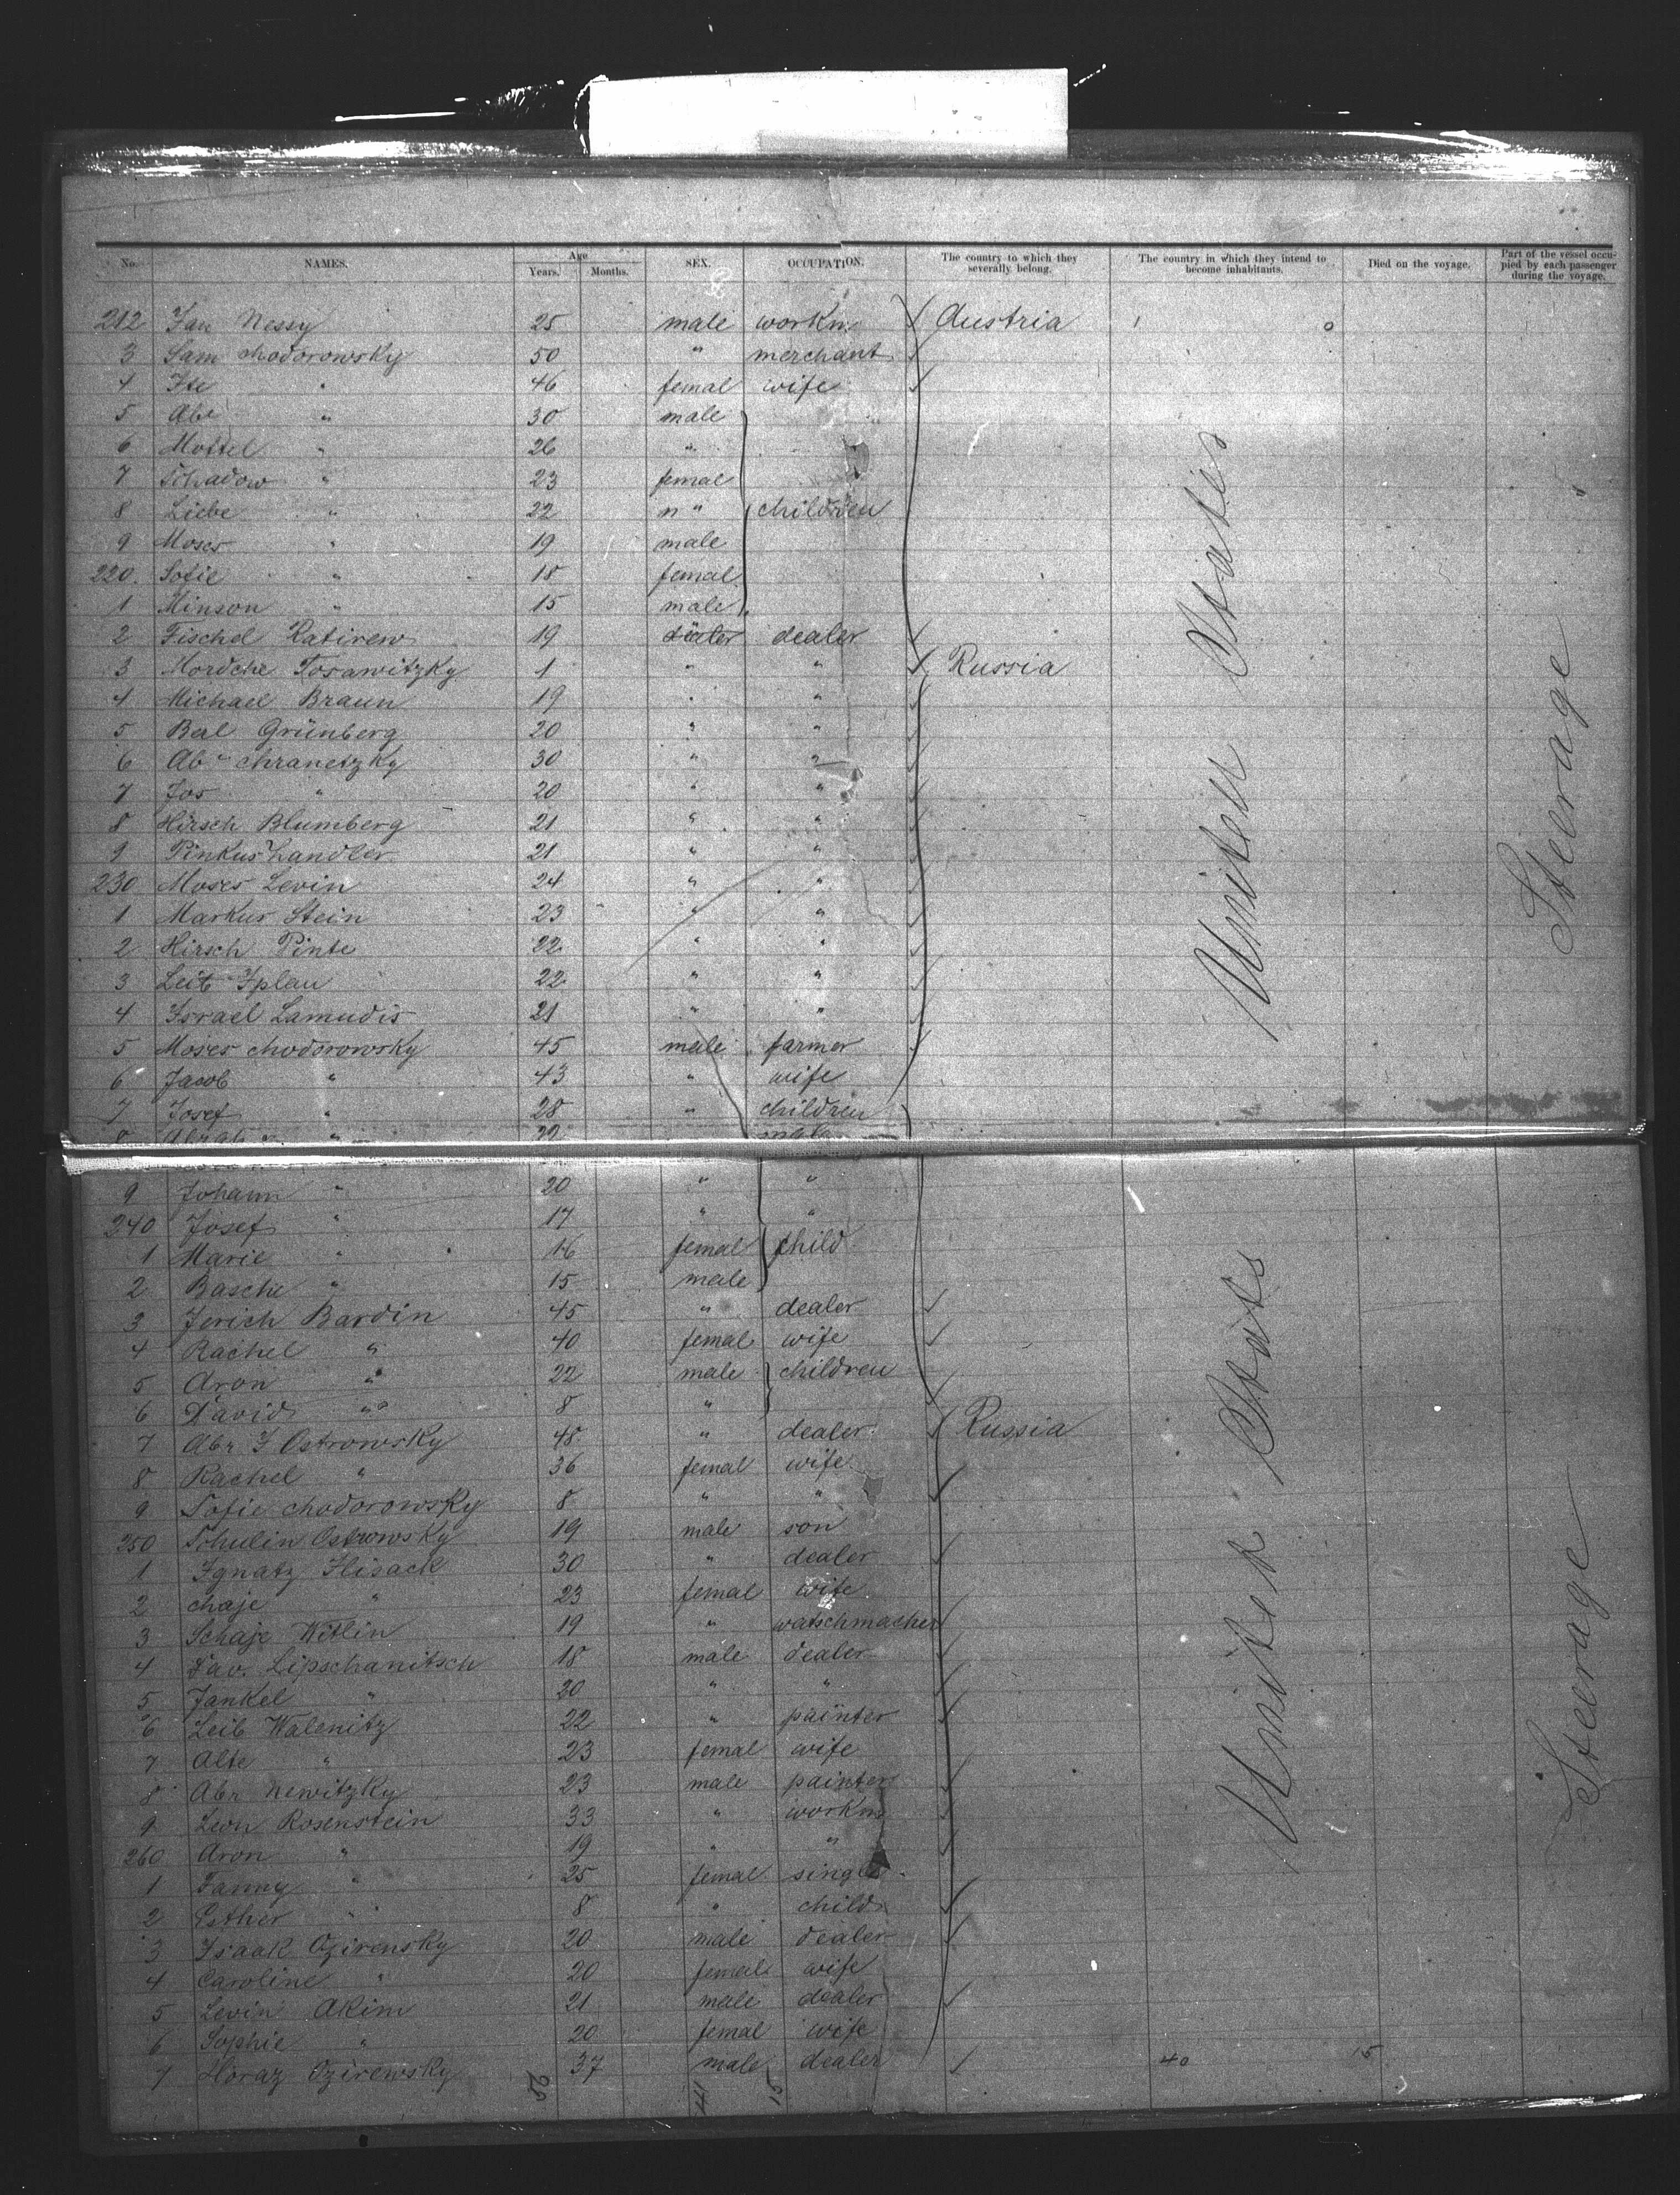 No. NAMES. Age Years. Months. SEX. OCCUPATION. The country to which they severally belong. The country in which they intend to become inhabitants. Died on the voyage. Part of the vessel occupied by each passenger during the voyage.
212 Jan Nessy 25 male workm. Austria
3 Sam chodorowsky 50 " merchant
4 Ite " 46 femal wife
5 Abr " 30 male
6 Mottel " 26 "
7 Schadow " 23 femal
8 Liebe " 22 n " children
9 Moses " 19 male
220. Sofie " 18 femal
1 Minson " 15 male
2 Fischel Ratirew 19 dealer
3 Mordche Tosawitzky 1 " " Russia
4 Michael Braun 19 " "
5 Beal Grünberg 20 " "
6 Ab chranetzky 30 " "
7 Jos " 20 " "
8 Hirsch Blumberg 21 " "
9 Pinkus Handler 21 " "
230 Moses Levin 24 " "
1 Markus Stein 23 " "
2 Hirsch Pinte 22 " "
3 Leib Iplau 22 " "
4 Israel Lamudis 21 " "
5 Moses chodorowsky 45 male farmer
6 Jacob " 43 " wife
7 Josef " 28 " children
8 " 22
United States
Steerage
9 Johann " 20 " "
240 Josef " 17 " "
1 Marie " 16 femal child
2 Basche " 15 male
3 Jerich Bardin 45 " dealer
4 Rachel " 40 femal wife
5 Aron " 22 male children
6 David " 8 "
7 Abr J Ostrowsky 48 " dealer Russia
8 Rachel " 36 femal wife
9 Sofie chodorowsky 8 " "
250 Schulin Ostrowsky 19 male son
1 Ignatz Hisack 30 " dealer
2 chaje " 23 femal wife
3 Schaje Witlin 19 " watschmacher
4 Dav. Lipschanitsch 18 male dealer
5 Jankel " 20 " "
6 Leib Walenitz 22 " painter
7 Alte " 23 femal wife
8 Abr Newitzky 23 male painter
9 Leon Rosenstein 33 " workm
260 Aron " 19 " "
1 Fanny " 25 femal single
2 Esther " 8 " child
3 Isaak Ozirensky 20 male dealer
4 Caroline " 20 femal wife
5 Levin Akim 21 male dealer
6 Sophie " 20 femal wife
7 Horaz Ozirewsky 37 male dealer 40 15
United States
Steerage